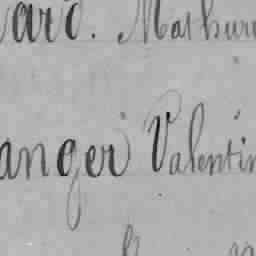 ard. Mathuri
anger Valentin